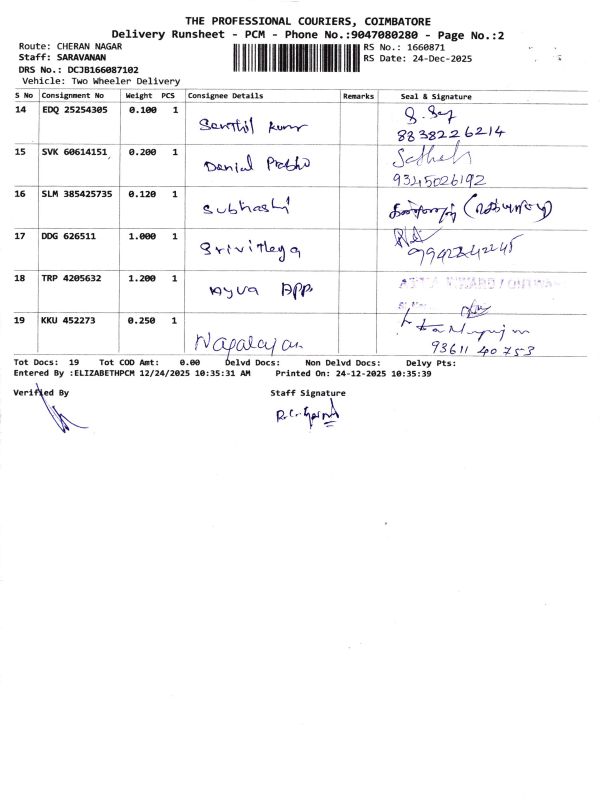 THE PROFESSIONAL COURIERS, COIMBATORE
Delivery Runsheet - PCM - Phone No.:9047080280 - Page No.:2
Route: CHERAN NAGAR
RS No.: 1660871
Staff: SARAVANAN
RS Date: 24-Dec-2025
DRS No.: DCJB166087102
Vehicle: Two Wheeler Delivery
S No Consignment No Weight PCS Consignee Details Remarks Seal & Signature
14 EDQ 25254305 0.100 1 Senthil kumar
8838226214
15 SVK 60614151 0.200 1 Denial Prabhu Sathesh
9345026192
16 SLM 385425735 0.120 1 Subhashi
17 DDG 626511 1.000 1 Srivitleya
18 TRP 4205632 1.200 1 Ayua App
19 KKU 452273 0.250 1 Nagalajan
93611 40753
Tot Docs: 19 Tot COD Amt: 0.00 Delvd Docs: Non Delvd Docs: Delvy Pts:
Entered By :ELIZABETHPCM 12/24/2025 10:35:31 AM Printed On: 24-12-2025 10:35:39
Verified By Staff Signature